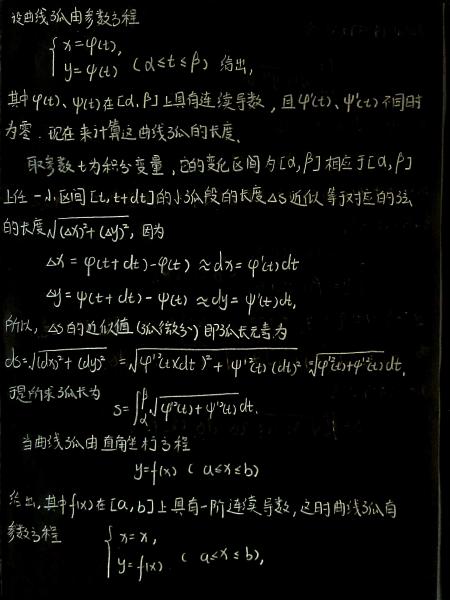 设曲线弧由参数方程
{ x=φ(t),
{ y=ψ(t) (α≤t≤β) 给出,
其中φ(t)、ψ(t)在[α,β]上具有连续导数,且φ'(t)、ψ'(t)不同时
为零.现在来计算这曲线弧的长度.
取参数t为积分变量,它的变化区间为[α,β]相应于[α,β]
上任一小区间[t,t+dt]的小弧段的长度△s近似等于对应的弦
的长度√(△x)²+(△y)²,因为
△x=φ(t+dt)-φ(t)≈dx=φ'(t)dt
△y=ψ(t+dt)-ψ(t)≈dy=ψ'(t)dt,
所以,△s的近似值(弧微分)即弧长元素为
ds=√(dx)²+(dy)² =√φ'²(t)(dt)²+ψ'²(t)(dt)² =√φ'²(t)+ψ'²(t)dt.
于是所求弧长为
s=∫_α^β√φ'²(t)+ψ'²(t)dt.
当曲线弧由直角坐标方程
y=f(x) (a≤x≤b)
给出,其中f(x)在[a,b]上具有一阶连续导数,这时曲线弧有
参数方程 { x=x,
{ y=f(x) (a≤x≤b),